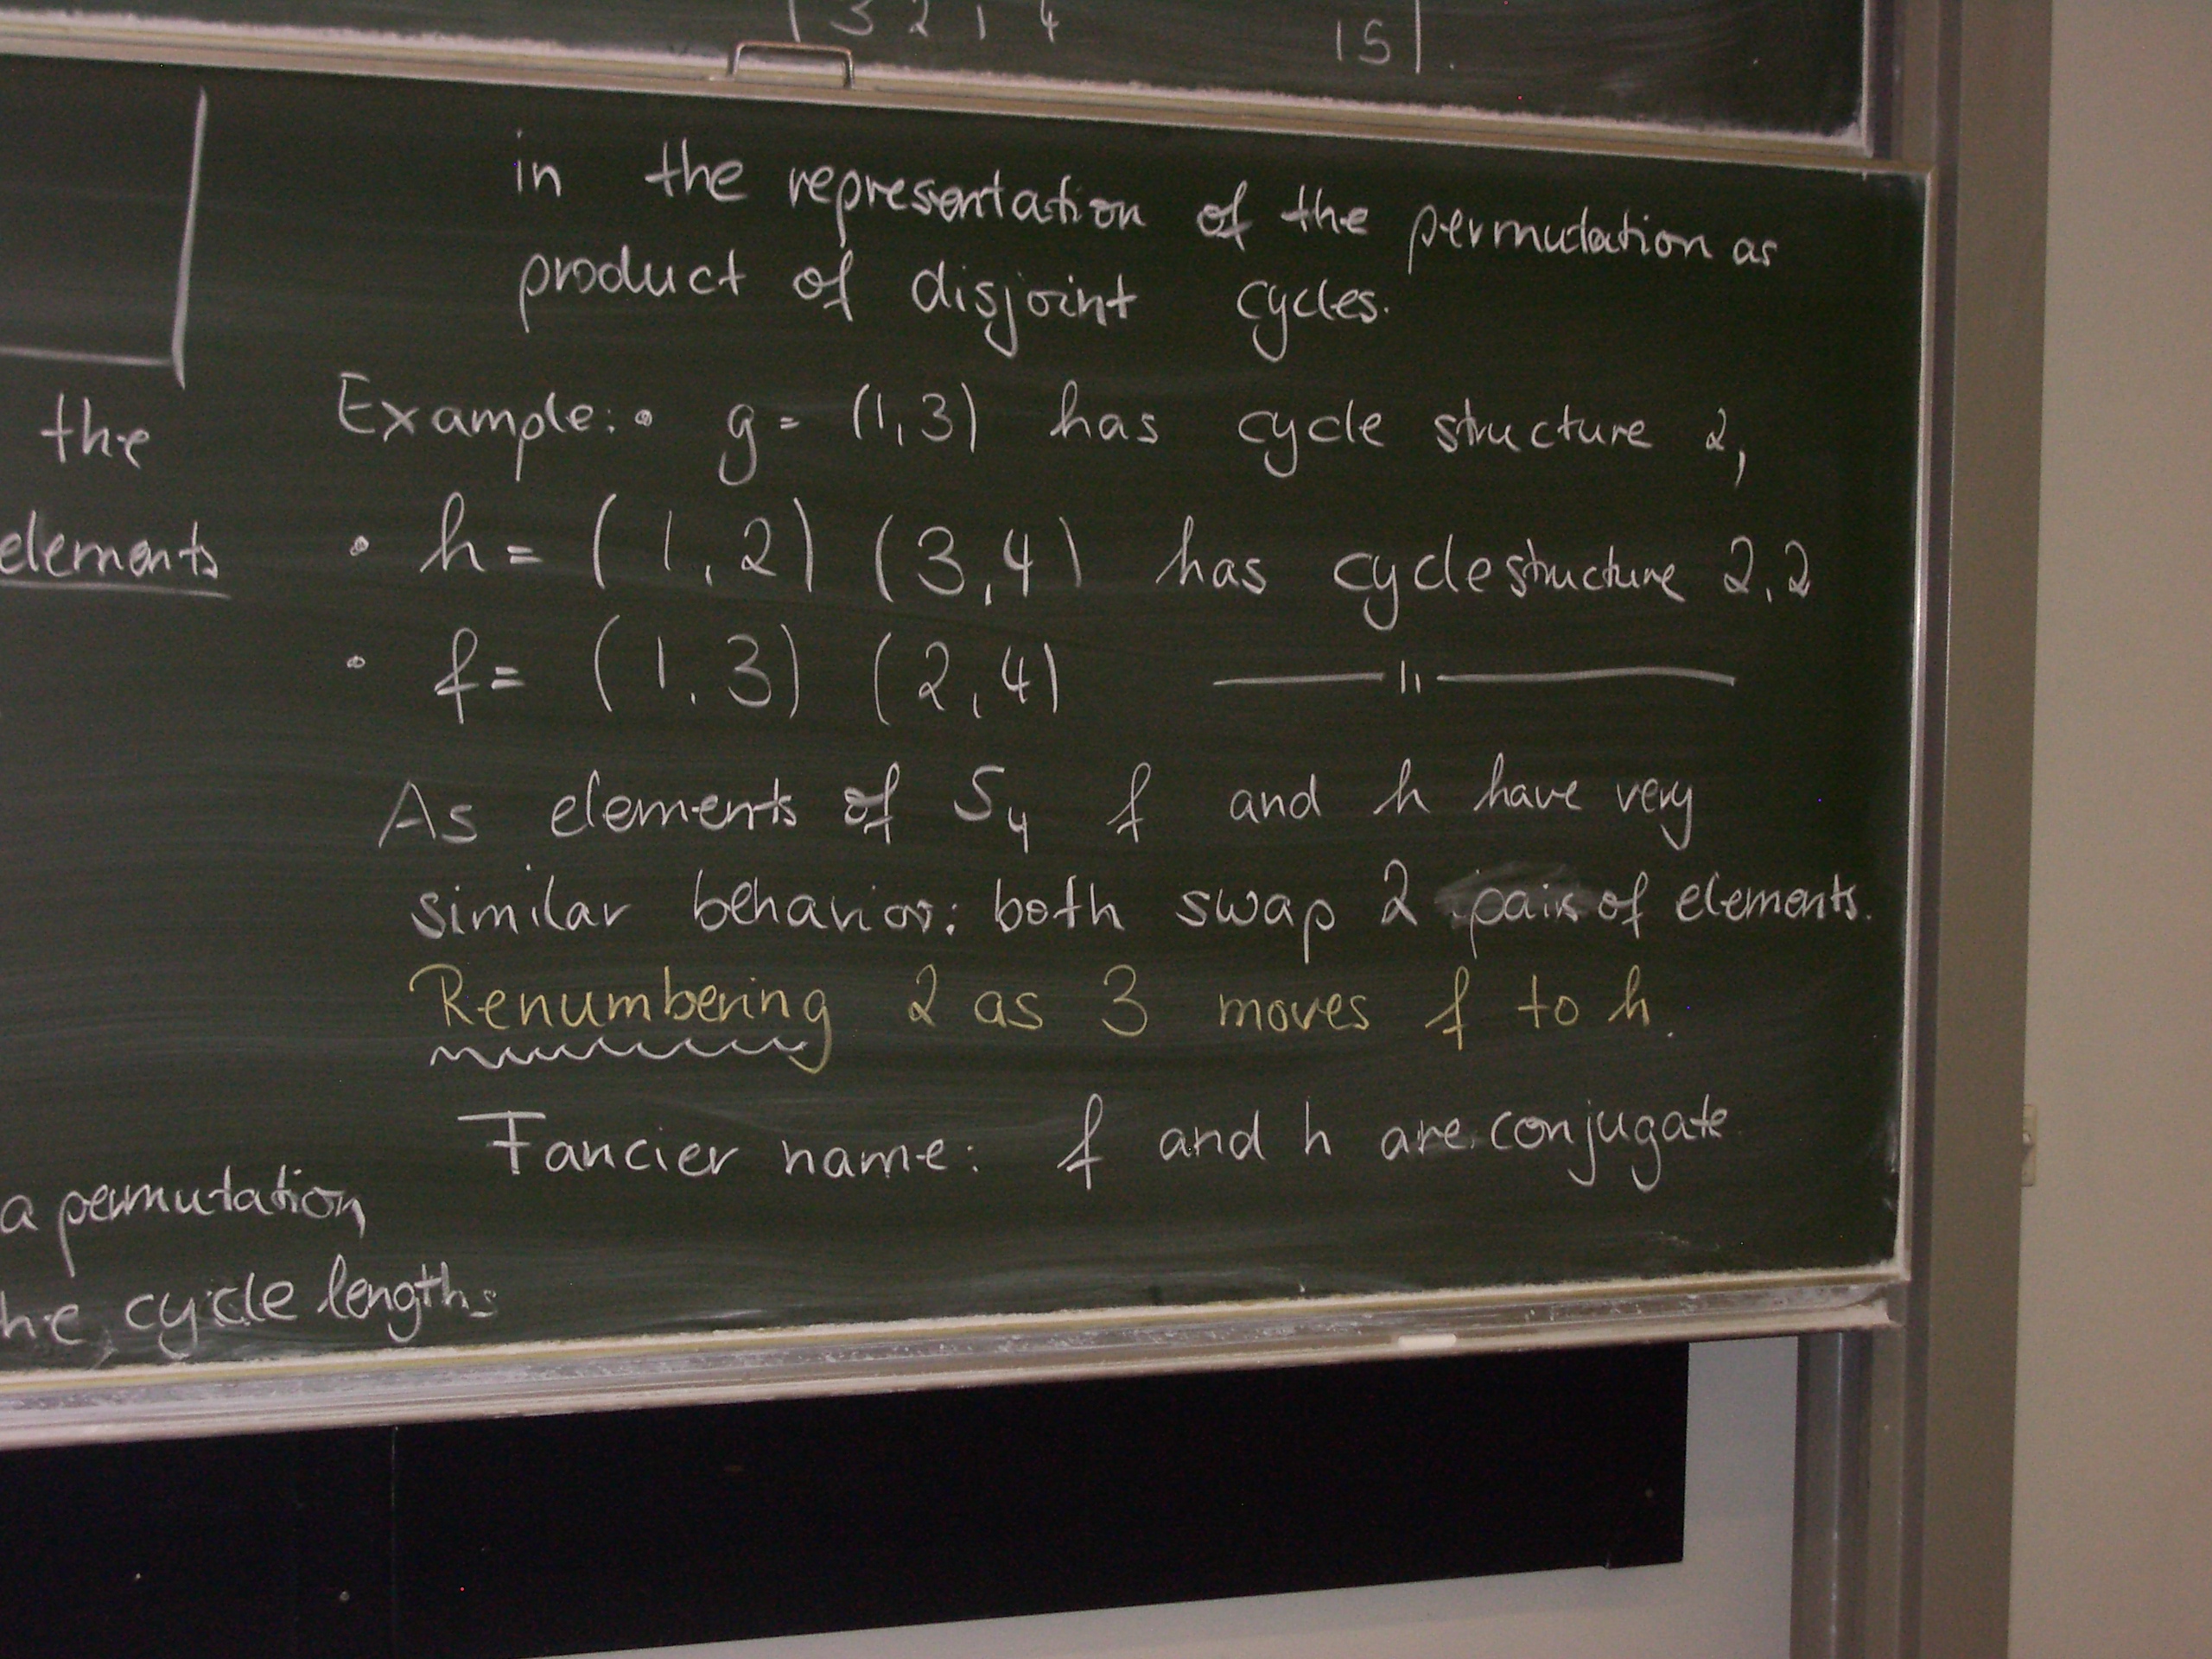 3 2 1 4 15
in the representation of the permutation as
product of disjoint cycles.
the
Example: • g = (1,3) has cycle structure 2,
elements
• h = (1,2) (3,4) has cyclestructure 2,2
• f = (1,3) (2,4) —— " ——
As elements of S₄ f and h have very
similar behavior: both swap 2 pairs of elements.
Renumbering 2 as 3 moves f to h.
Fancier name: f and h are conjugate
a permutation
he cycle lengths